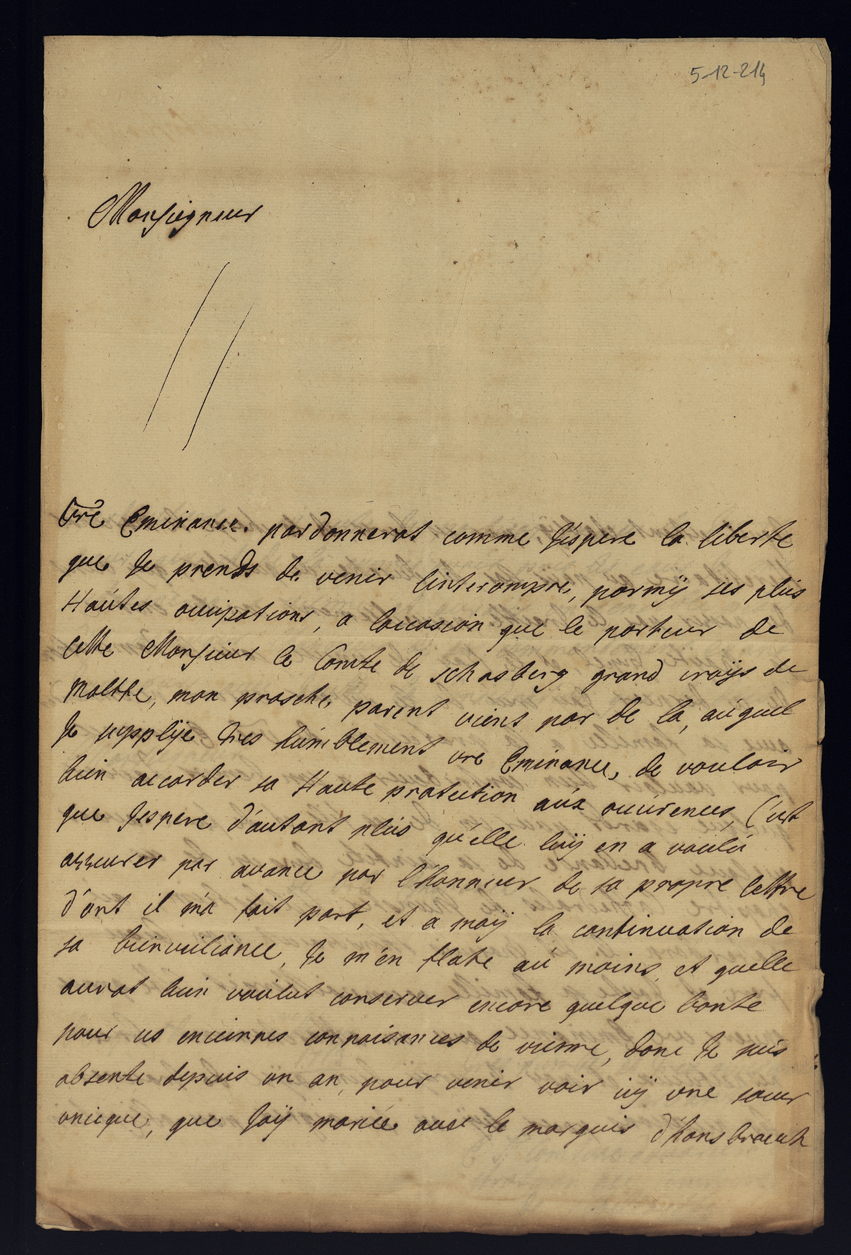 5-12-214
Monseigneur
Vre Eminance. pardonnerat comme J'espere la liberte
que Je prends de venir l'interompre, parmÿ ses plus
Hautes occupations, a l'occasion que le porteur de
Cette Monsieur le Comte de schasberg grand croÿs de
malthe, mon prosche parent vient par de la, auquel
Je supplije tres humblement vre Eminance, de vouloir
bien accorder sa Haute protection aux occurences, C'est
que Jespere d'autant plus qu'elle luÿ en a voulu
asseurer par avance par l'Honneur de sa propre lettre
d'ont il m'a fait part, et a moÿ la continuation de
sa bienveiliance, Je m'en flate au moins, et quelle
aurat bien voulut conserver encore quelque bonte
pour vos enciennes connaisances de vienne, donc Je suis
absente depuis un an, pour venir voir icÿ une soeur
unieque, que Jaÿ mariée avec le marquis d'Hansbroeck